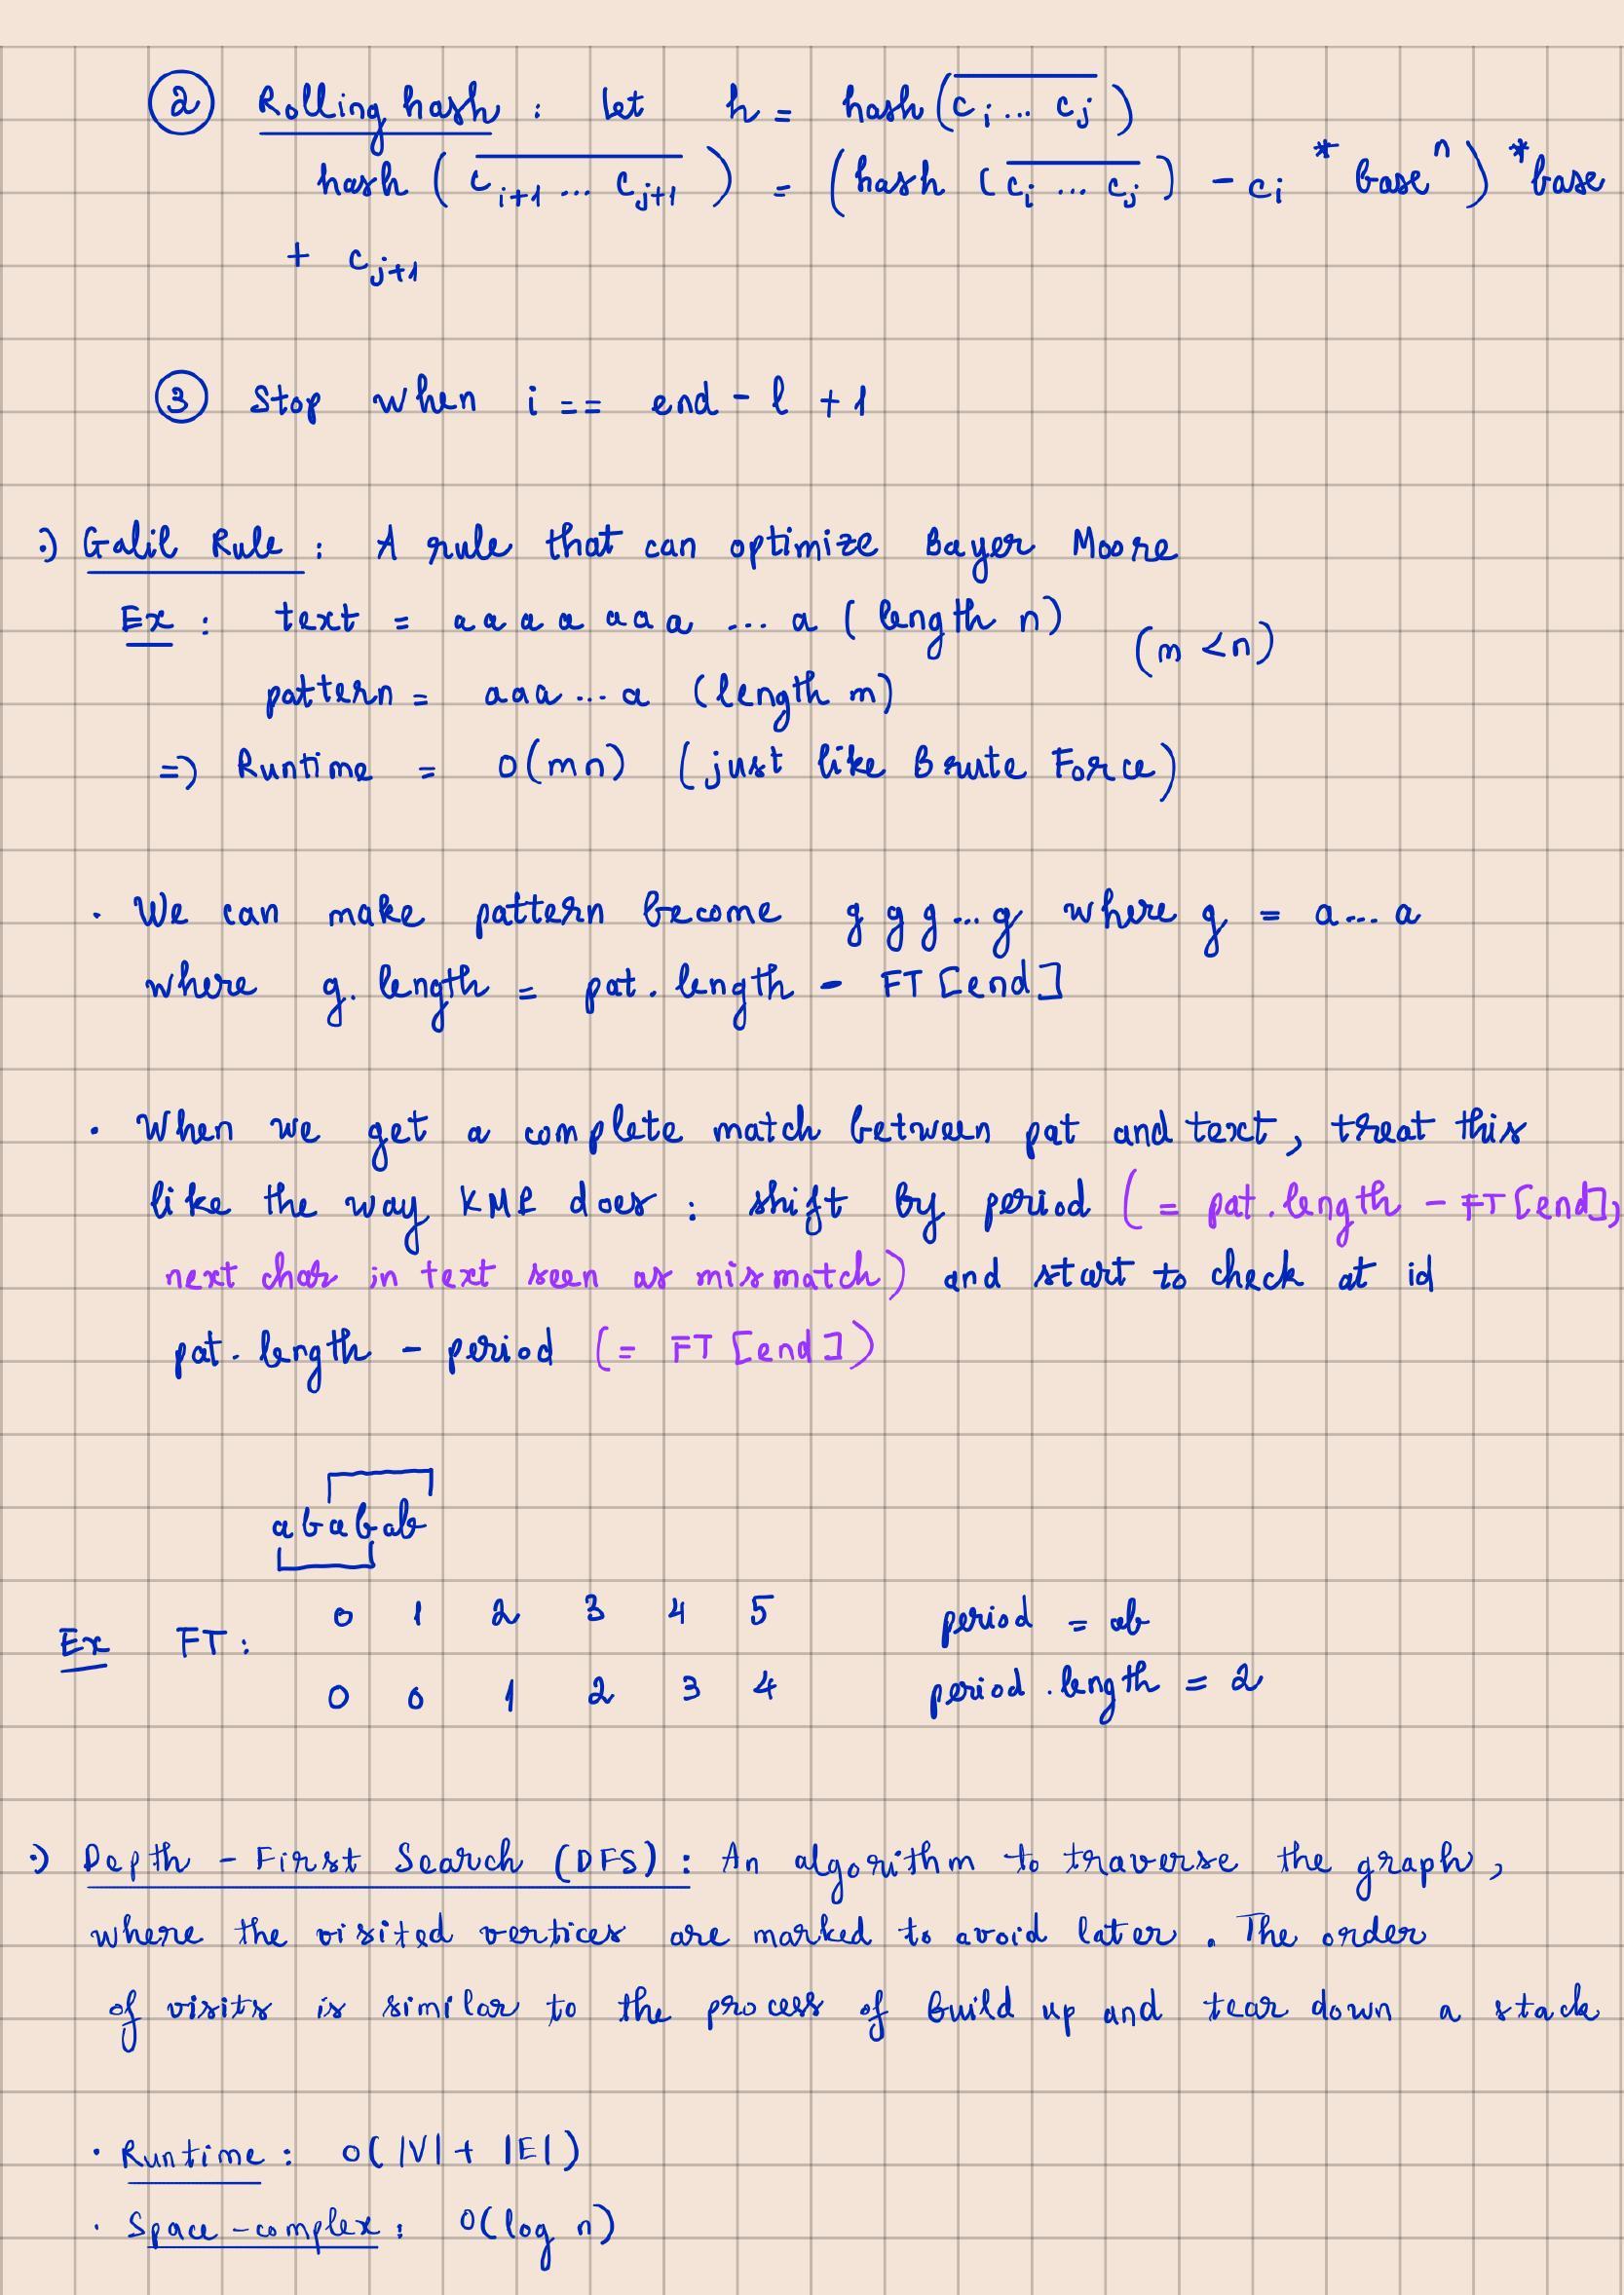 ② Rolling hash : let h = hash(c_i ... c_j)
hash ( c_{i+1} ... c_{j+1} ) = (hash (c_i ... c_j) - c_i * base^n) * base
+ c_{j+1}
③ Stop when i == end - l + 1
:) Galil Rule : A rule that can optimize Bayer Moore
Ex : text = a a a a a a a ... a ( length n)
(m < n)
pattern = aaa ... a (length m)
=> Runtime = O(mn) (just like Brute Force)
· We can make pattern become g g g ... g where g = a ... a
where g. length = pat. length - FT [end]
· When we get a complete match between pat and text, treat this
like the way KMP does : shift by period ( = pat. length - FT [end],
next char in text seen as mismatch) and start to check at id
pat. length - period (= FT [end])
ababab
0 1 2 3 4 5 period = ab
Ex FT :
0 0 1 2 3 4 period . length = 2
:) Depth - First Search (DFS) : An algorithm to traverse the graph,
where the visited vertices are marked to avoid later . The order
of visits is similar to the process of build up and tear down a stack
· Runtime : O( |V| + |E| )
· Space - complex : O(log n)